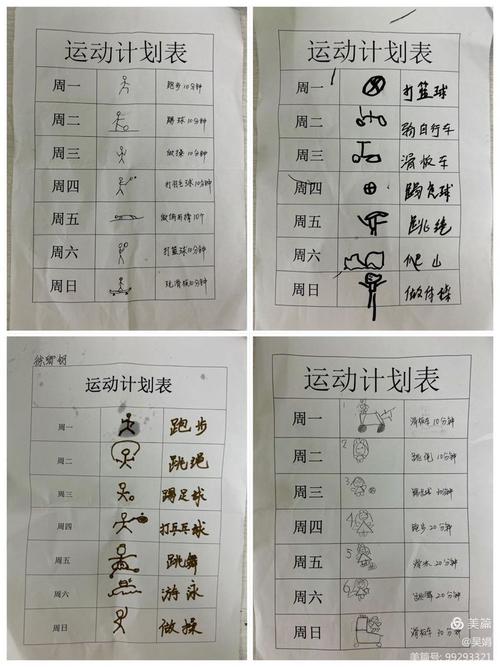 运动计划表
周一 跑步10分钟
周二 踢球10分钟
周三 做操10分钟
周四 打乒乓球10分钟
周五 做俯卧撑10个
周六 打篮球10分钟
周日 玩滑板10分钟
运动计划表
周一 打篮球
周二 骑自行车
周三 滑板车
周四 踢足球
周五 跳绳
周六 爬山
周日 做体操
运动计划表
周一 跑步
周二 跳绳
周三 踢足球
周四 打乒乓球
周五 跳舞
周六 游泳
周日 做操
运动计划表
周一 1 滑板车10分钟
周二 2 跳绳10分钟
周三 3 踢足球30分钟
周四 4 跑步20分钟
周五 5 20分钟
周六 6 跳舞20分钟
周日 滑板车30分钟
美篇
@吴娟
美篇号:99293321